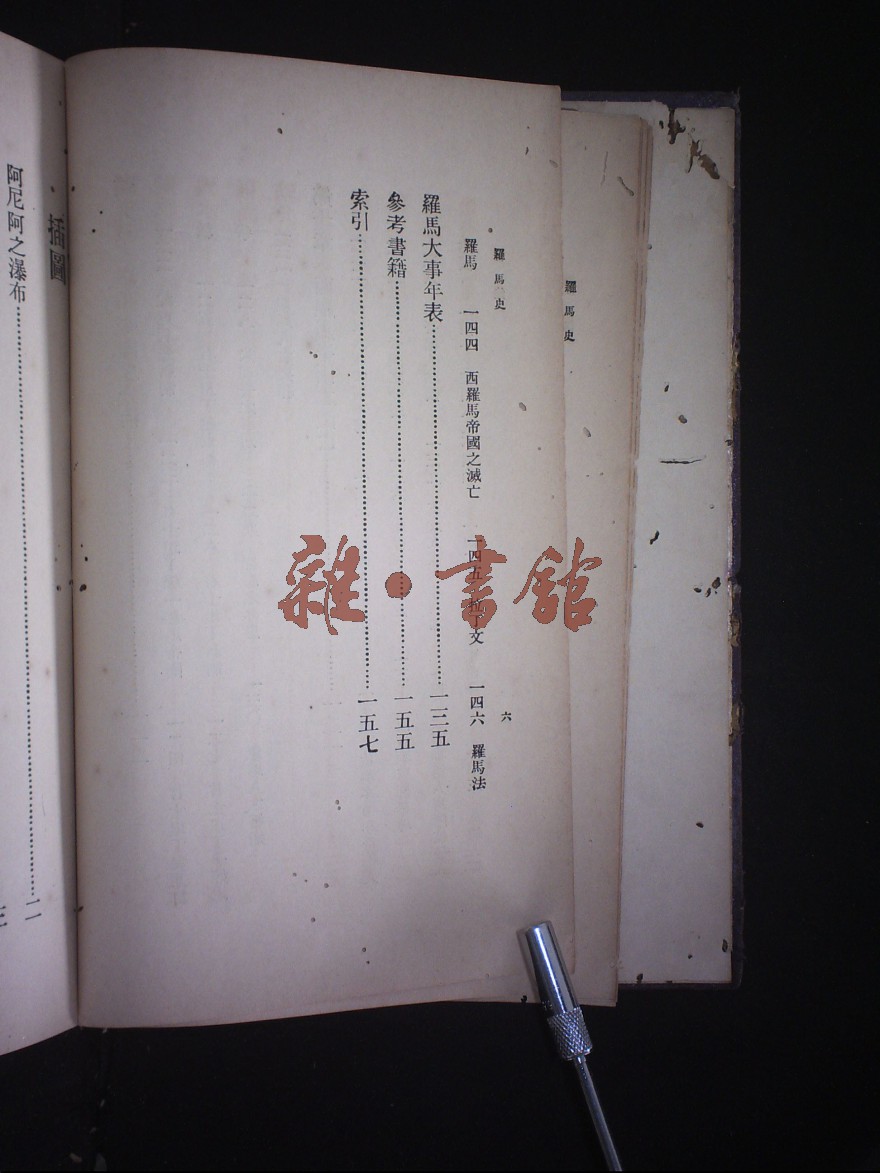 羅馬史
羅馬史 六
羅馬 一四四 西羅馬帝國之滅亡 一四五 拉丁文 一四六 羅馬法
羅馬大事年表……一三五
參考書籍……一五五
索引……一五七
插圖
阿尼阿之瀑布……二
雜·書館